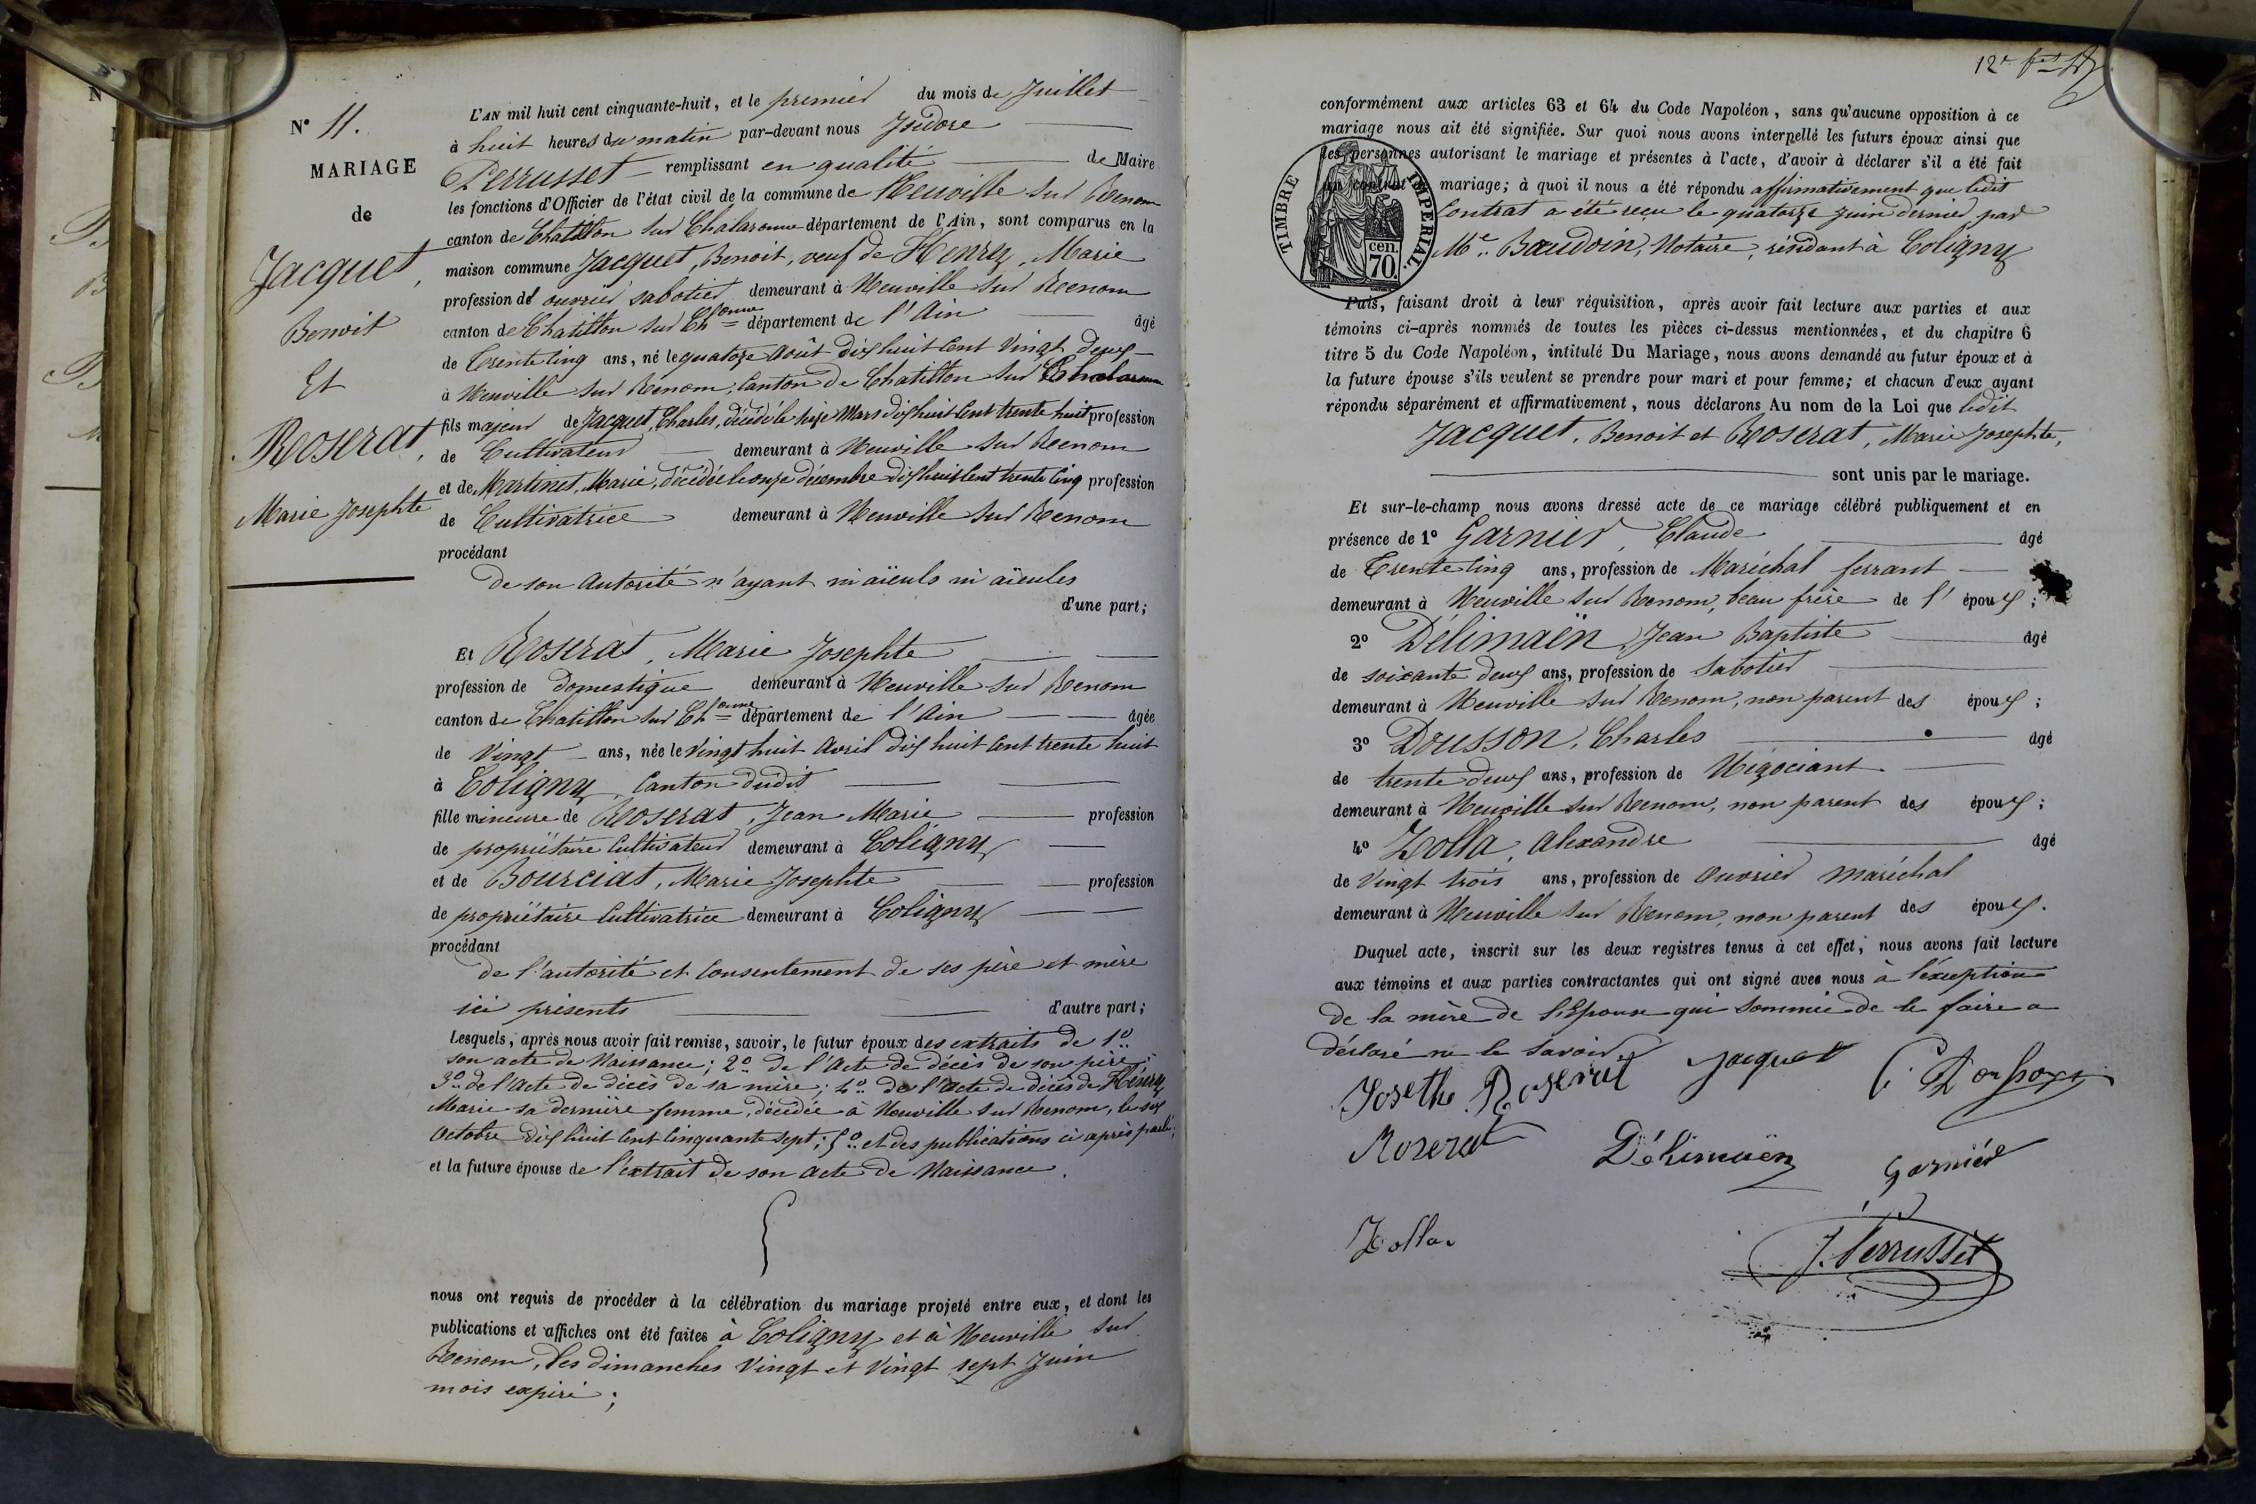 N° 11.
MARIAGE
de
Jacquet,
Benoit
Et
Roserat,
Marie Josephte
L'AN mil huit cent cinquante-huit, et le premier du mois de Juillet
à huit heures du matin par-devant nous Isidore
Perrusset remplissant en qualité de Maire
les fonctions d'Officier de l'état civil de la commune de Neuville sur Renom
canton de Chatillon sur Chalaronne département de l'Ain, sont comparus en la
maison commune Jacquet, Benoit, veuf de Henry, Marie
profession de ouvrier sabotier demeurant à Neuville sur Renom
canton de Chatillon sur Ch=ronne département de l'Ain âgé
de Trente cinq ans, né le quatorze Août dix huit cent vingt deux
à Neuville sur Renom, canton de Chatillon sur Chalaronne
fils majeur de Jacquet, Charles, décédé le seize Mars dix huit cent trente huit profession
de Cultivateur demeurant à Neuville sur Renom
et de Martinet, Marie, décédée le onze décembre dix huit cent trente cinq profession
de Cultivatrice demeurant à Neuville sur Renom
procédant
de son autorité n'ayant ni aïeuls ni aïeules
d'une part;
Et Roserat, Marie Josephte
profession de domestique demeurant à Neuville sur Renom
canton de Chatillon sur Ch=ronne département de l'Ain âgée
de vingt ans, née le vingt huit avril dix huit cent trente huit
à Coligny, canton dudit
fille mineure de Roserat, Jean Marie profession
de propriétaire cultivateur demeurant à Coligny
et de Bourciat, Marie Josephte profession
de propriétaire cultivatrice demeurant à Coligny
procédant
de l'autorité et consentement de ses père et mère
ici présents d'autre part;
Lesquels, après nous avoir fait remise, savoir, le futur époux des extraits de 1°
son acte de Naissance; 2° de l'Acte de décès de son père;
3° de l'Acte de décès de sa mère; 4° de l'acte de décès de Henry
Marie sa dernière femme, décédée à Neuville sur Renom, le six
Octobre dix huit cent cinquante sept; 5° et des publications ci après parlé;
et la future épouse de l'extrait de son acte de Naissance.
nous ont requis de procéder à la célébration du mariage projeté entre eux, et dont les
publications et affiches ont été faites à Coligny et à Neuville sur
Renom, les dimanches vingt et vingt sept Juin
mois expiré;
12e
conformément aux articles 63 et 64 du Code Napoléon, sans qu'aucune opposition à ce
mariage nous ait été signifiée. Sur quoi nous avons interpellé les futurs époux ainsi que
les personnes autorisant le mariage et présentes à l'acte, d'avoir à déclarer s'il a été fait
un contrat de mariage; à quoi il nous a été répondu affirmativement que ledit
Contrat a été reçu le quatorze juin dernier par
Me Baudoin, Notaire, résidant à Coligny
TIMBRE IMPERIAL.
cen.
70.
Puis, faisant droit à leur réquisition, après avoir fait lecture aux parties et aux
témoins ci-après nommés de toutes les pièces ci-dessus mentionnées, et du chapitre 6
titre 5 du Code Napoléon, intitulé Du Mariage, nous avons demandé au futur époux et à
la future épouse s'ils veulent se prendre pour mari et pour femme; et chacun d'eux ayant
répondu séparément et affirmativement, nous déclarons Au nom de la Loi que ledit
Jacquet, Benoit et Roserat, Marie Josephte,
sont unis par le mariage.
Et sur-le-champ nous avons dressé acte de ce mariage célébré publiquement et en
présence de 1° Garnier, Claude âgé
de Trente cinq ans, profession de Maréchal ferrant
demeurant à Neuville sur Renom, beau frère de l'époux;
2° Délimaën, Jean Baptiste âgé
de soixante deux ans, profession de Sabotier
demeurant à Neuville sur Renom, non parent des époux;
3° Dousson, Charles âgé
de trente deux ans, profession de Négociant
demeurant à Neuville sur Renom, non parent des époux;
4° Zolla, Alexandre âgé
de vingt trois ans, profession de Ouvrier maréchal
demeurant à Neuville sur Renom, non parent des époux.
Duquel acte, inscrit sur les deux registres tenus à cet effet, nous avons fait lecture
aux témoins et aux parties contractantes qui ont signé avec nous à l'exception
de la mère de l'Epouse qui sommée de le faire a
déclaré ne le savoir
Josethe Roserat Jacquet C. Dousson
Roserat Délimaën Garnier
Zolla
J. Perrusset